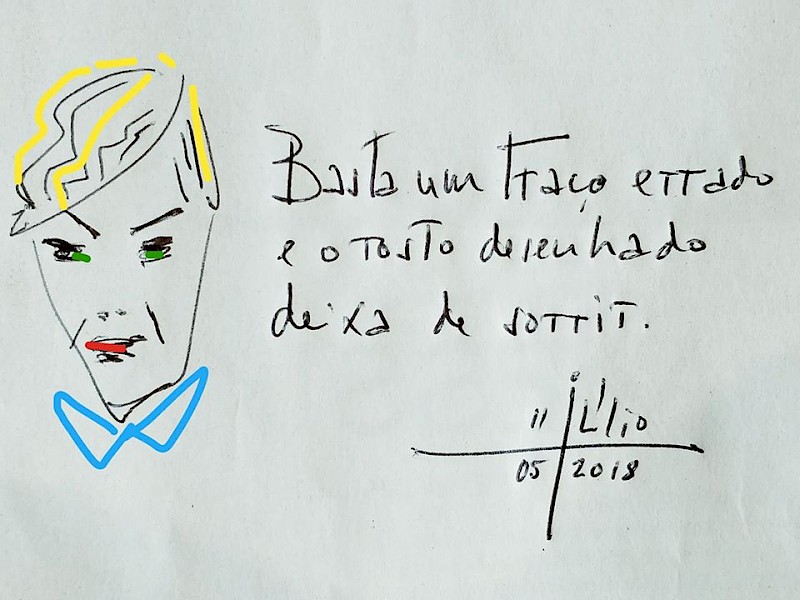 Basta um traço errado
e o rosto desenhado
deixa de sorrir.
11 Lílio
05 2018